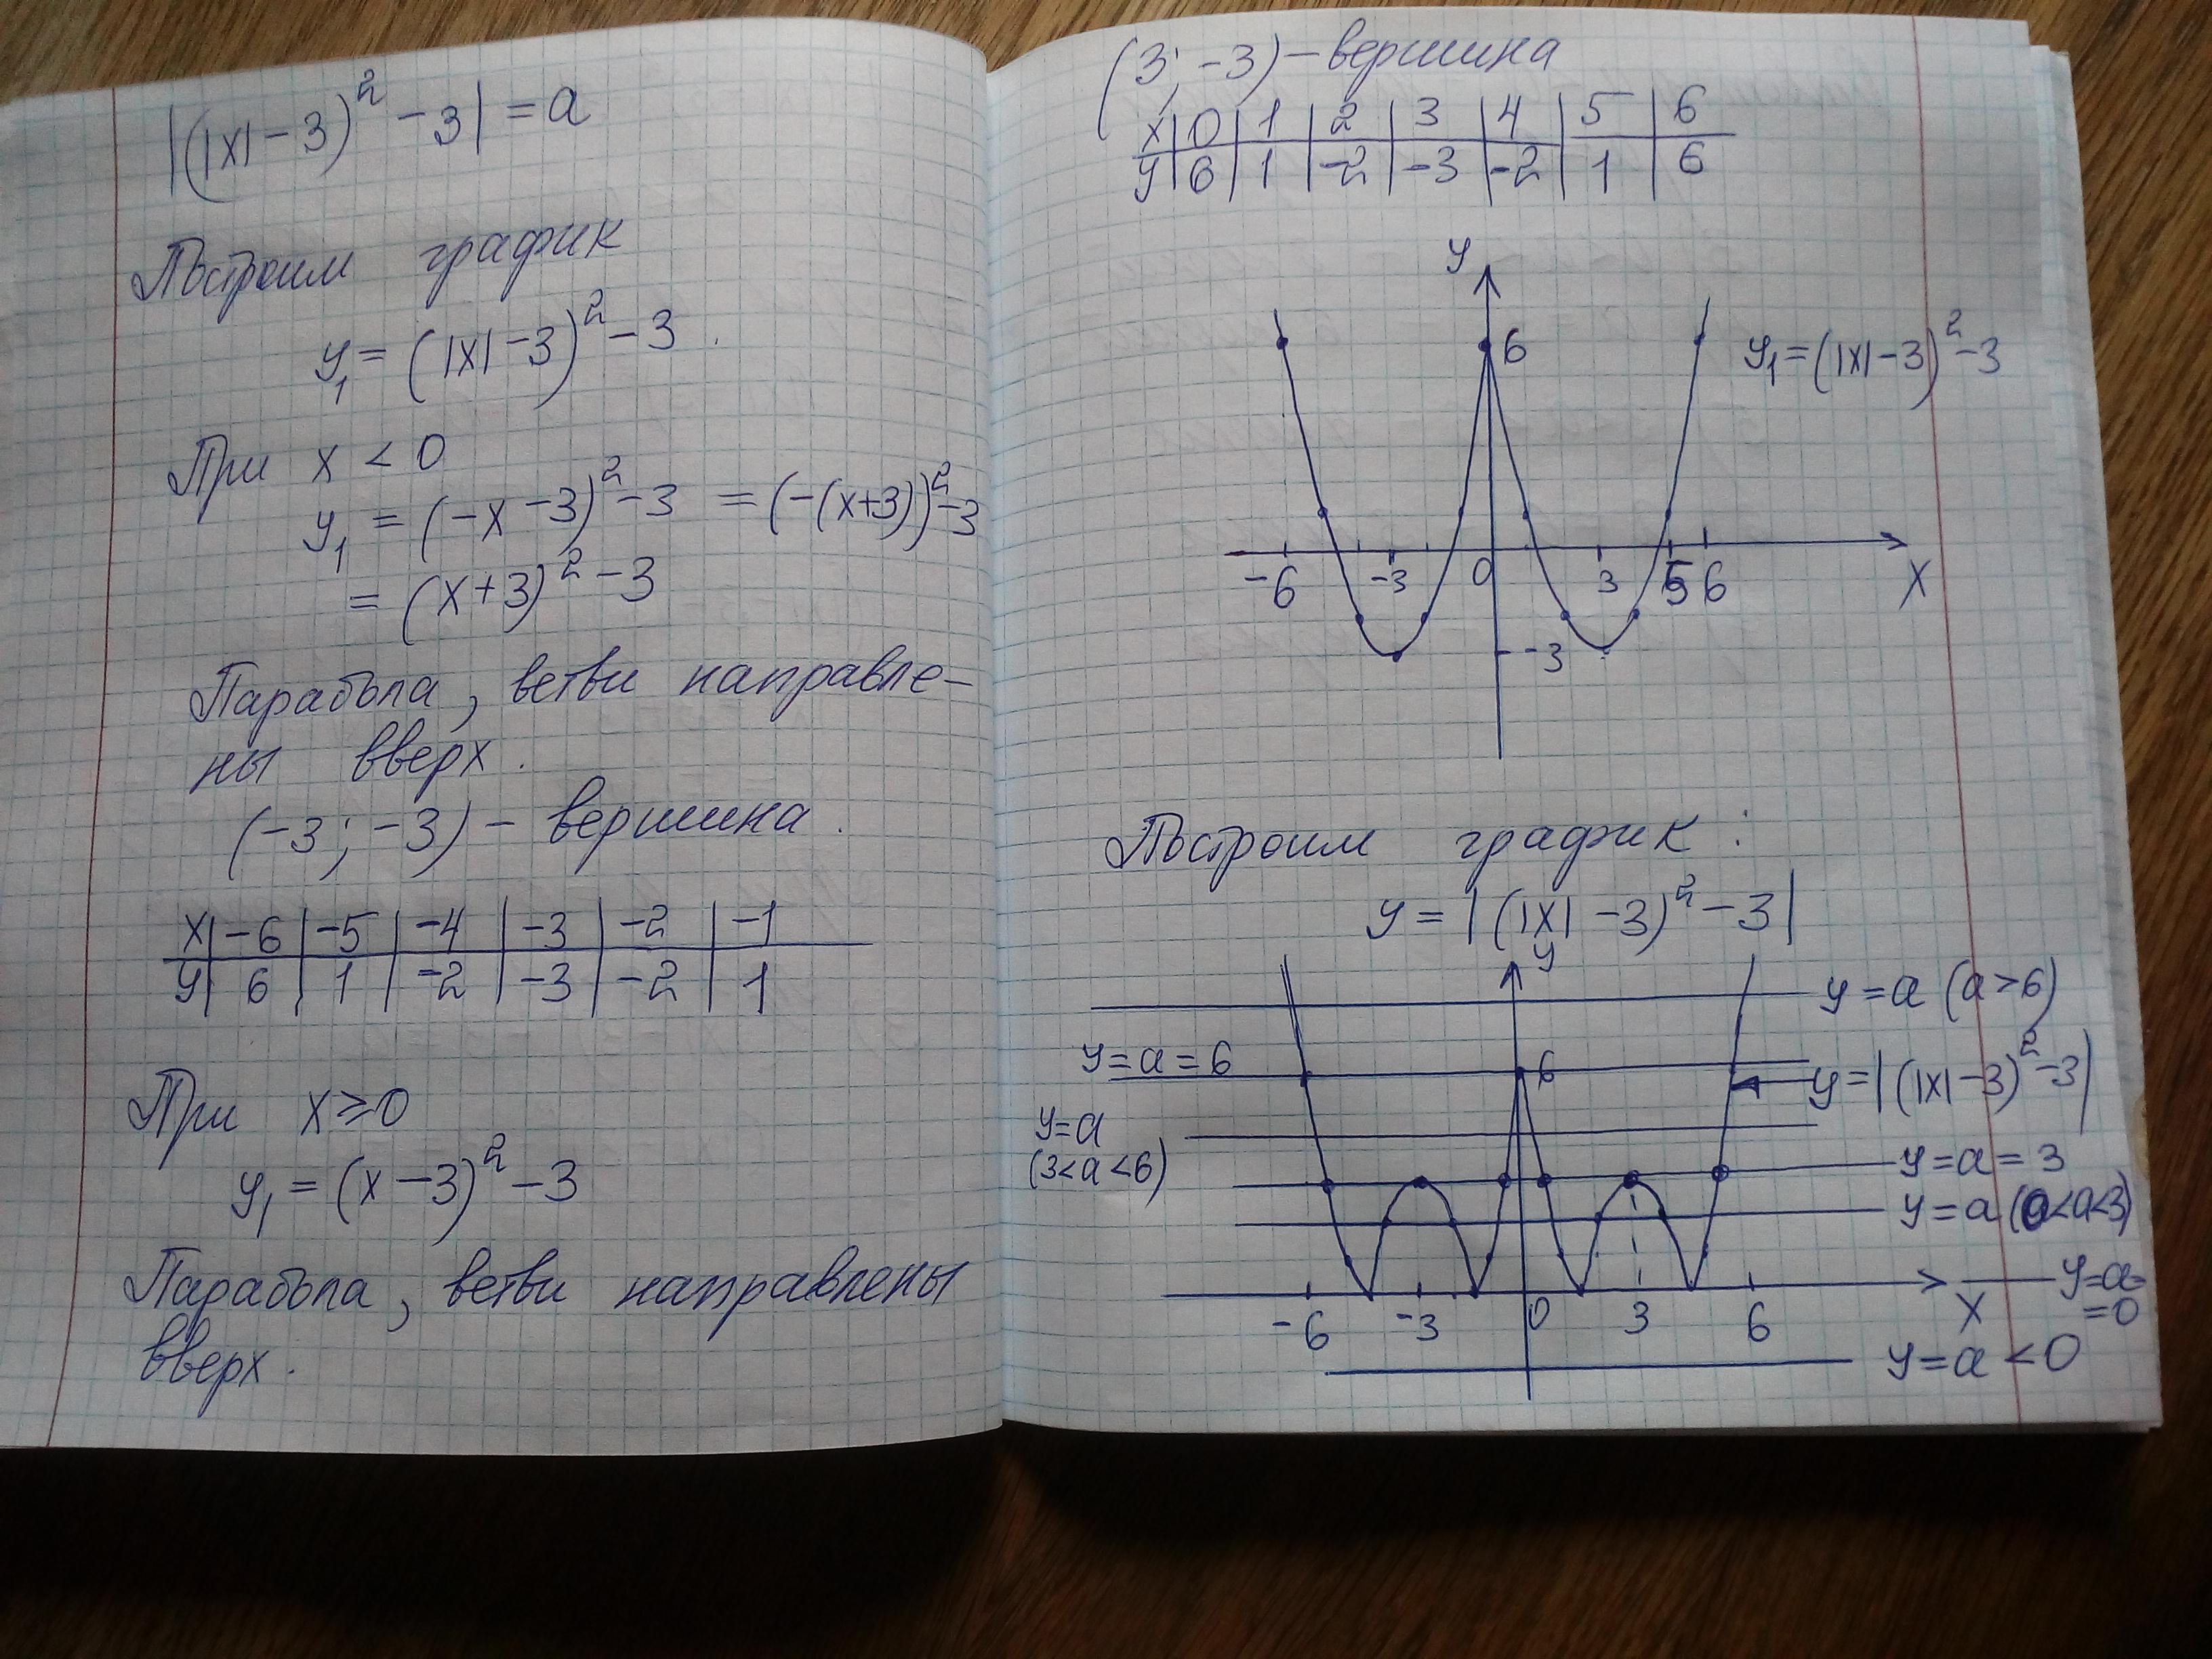 |(|x|-3)² - 3| = a
Построим график
y₁ = (|x|-3)² - 3.
При x < 0
y₁ = (-x - 3)² - 3 = (-(x+3))² - 3
= (x+3)² - 3
Парабола, ветви направле-
ны вверх.
(-3; -3) - вершина.
x | -6 | -5 | -4 | -3 | -2 | -1
y | 6 | 1 | -2 | -3 | -2 | 1
При x ⩾ 0
y₁ = (x - 3)² - 3
Парабола, ветви направлены
вверх.
(3; -3) - вершина
x | 0 | 1 | 2 | 3 | 4 | 5 | 6
y | 6 | 1 | -2 | -3 | -2 | 1 | 6
y
6
y₁ = (|x|-3)² - 3
-6 -3 0 3 5 6 x
-3
Построим график:
y = |(|x| - 3)² - 3|
y
y = a (a > 6)
y = a = 6
6
y = |(|x| - 3)² - 3|
y = a
(3 < a < 6)
y = a = 3
y = a (0 < a < 3)
-6 -3 0 3 6 x
y = a =
= 0
y = a < 0